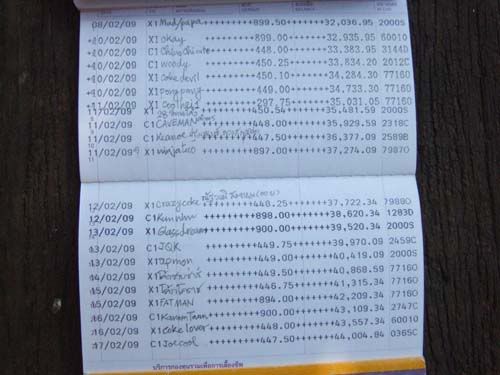 08/02/09 X1 Mad/papa ++++++++899.50++++++32,036.95 2000S
10/02/09 X1 okay ++++++++899.00++++++32,935.95 60010
10/02/09 C1 ++++++++448.00++++++33,383.95 3144D
10/02/09 C1 woody ++++++++450.25++++++33,834.20 2012C
10/02/09 X1 coke devil ++++++++450.10++++++34,284.30 77160
10/02/09 X1 pongpang ++++++++449.00++++++34,733.30 77160
11/02/09 X1 ++++++++297.75++++++35,031.05 77160
11/02/09 X1 ++++++++450.54++++++35,481.59 2000S
11/02/09 C1 CAVEMAN ++++++++448.00++++++35,929.59 2318C
11/02/09 C1 ++++++++447.50++++++36,377.09 2589B
11/02/09 X1 ninjaleo ++++++++897.00++++++37,274.09 79870
12/02/09 X1 Crazycoke ++++++++448.25++++++37,722.34 79880
12/02/09 C1 ++++++++898.00++++++38,620.34 1283D
13/02/09 X1 Glassdream ++++++++900.00++++++39,520.34 2000S
13/02/09 C1 JQK ++++++++449.75++++++39,970.09 2459C
13/02/09 X1 ++++++++449.00++++++40,419.09 2000S
14/02/09 X1 ++++++++449.50++++++40,868.59 77160
15/02/09 X1 ++++++++446.75++++++41,315.34 77160
15/02/09 X1 FATMAN ++++++++894.00++++++42,209.34 77160
16/02/09 C1 ++++++++900.00++++++43,109.34 2747C
16/02/09 X1 coke lover ++++++++448.00++++++43,557.34 60010
17/02/09 C1 Joecool ++++++++447.50++++++44,004.84 0365C
บริการกองทุนรวมเพื่อการเลี้ยงชีพ